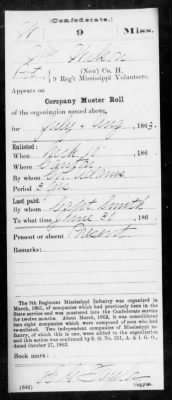 (Confederate.)
W 9 Miss.
Wm Wilson
Pvt., (New) Co. H,
9 Reg't Mississippi Volunteers.
Appears on
Company Muster Roll
of the organization named above,
for July & Aug, 1863.
Enlisted:
When , 186
Where
By whom Adams
Period 3 yrs
Last paid:
By whom Capt Smith
To what time June 30, 186
Present or absent Present
Remarks:
The 9th Regiment Mississippi Infantry was organized in
March, 1861, of companies which had previously been in the
State service and was mustered into the Confederate service
for twelve months. About March, 1862, it was consolidated
into eight companies which were composed of men who had
re-enlisted. Two independent companies of Mississippi in-
fantry, of which this is one, were added to the organization
and this action was confirmed by S. O. No. 251, A. & I. G. O.,
dated October 27, 1862.
Book mark:
(642) Copyist.